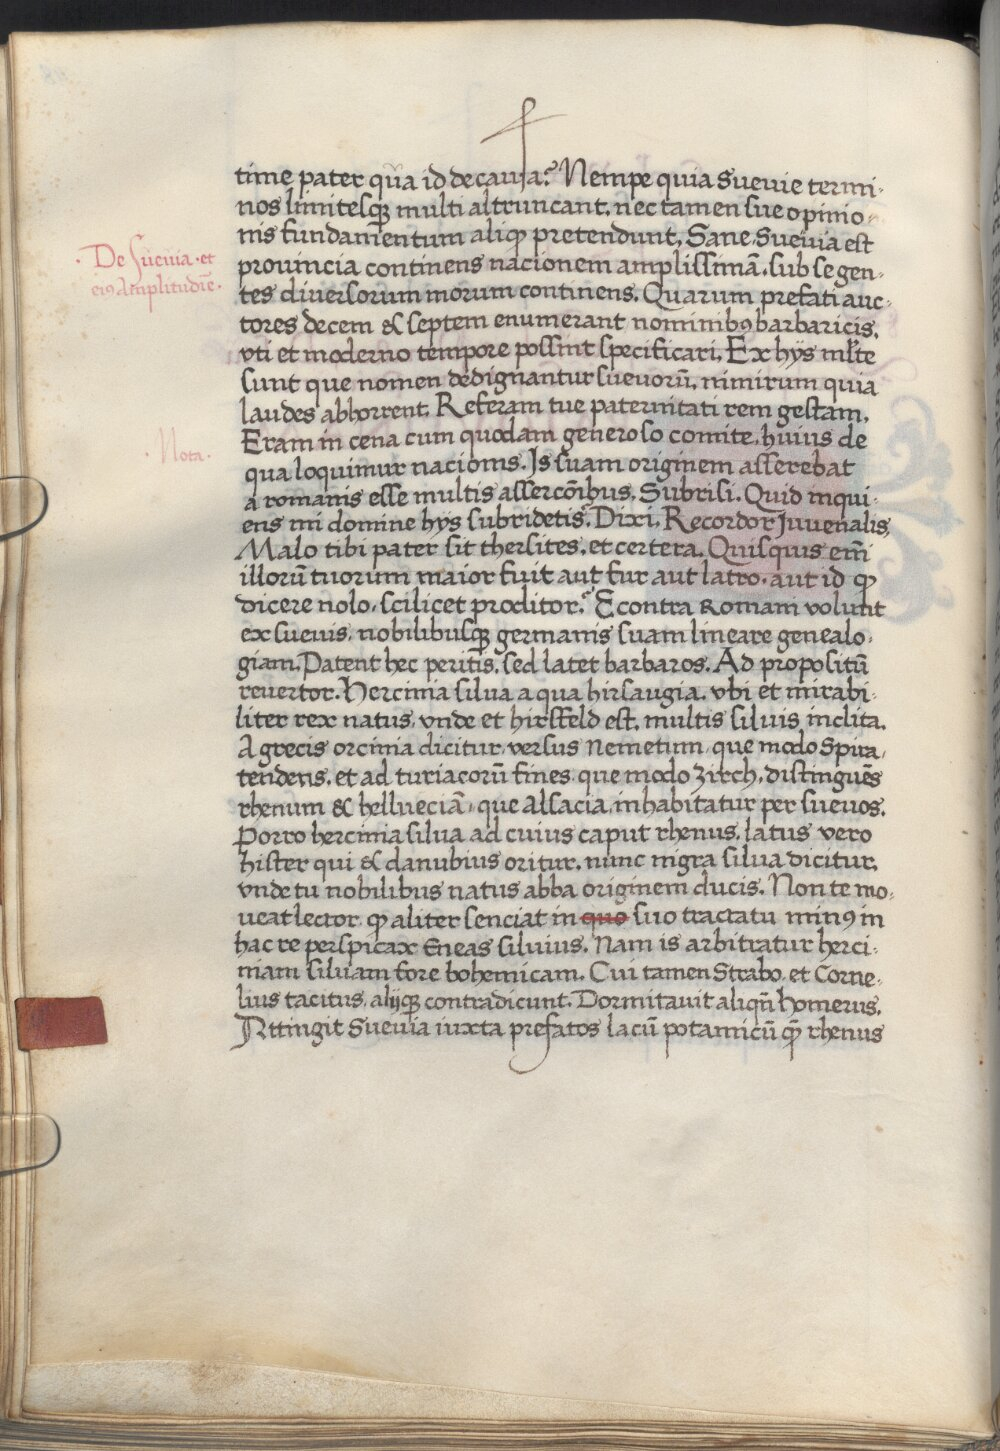 time pater qũa id de causa? Nempe quia Sueuie termi-
nos limitesqꝫ multi altruncant, nec tamen sue opinio-
nis fundamentum aliqꝫ pretendunt. Sane Sueuia est
· De Sueuia · et
prouincia continens nacionem amplissimā, sub se gen-
eiꝰ Amplitudīe ·
tes diuersorum morum continens. Quarum prefati auc-
tores decem & septem enumerant nominibꝰ barbaricis,
vti et moderno tempore possint specificari. Ex hys mĺte
sunt que nomen dedignantur sueuorū, nimirum quia
laudes abhorrent. Referam tue paternitati rem gestam.
Eram in cena cum quodam generoso comite, huius de
· Nota ·
qua loquimur nacionis. Is suam originem asserebat
a romanis esse multis assercōibus. Subrisi. Quid inqui-
ens mi domine hys subridetis? Dixi. Recordor Iuuenalis,
Malo tibi pater sit thersites, et certera. Quisquis em̄
illorū tuorum maior fuit aut fur aut latro, aut id qꝫ
dicere nolo, scilicet proditor? E contra Romani volunt
ex sueuis, nobilibusqꝫ germanis suam lineare genealo-
giam. Patent hec peritis, sed latet barbaros. Ad propositū
reuertor. Hercinia silua a qua hirsaugia, vbi et mirabi-
liter rex natus, vnde et hirsfeld est, multis siluis inclita.
A grecis orcinia dicitur, versus Nemetum, que modo Spira,
tendens, et ad turiacorū fines, que modo Zirch, distinguēs
rhenum & hellueciā, que Alsacia inhabitatur per sueuos.
Porro hercinia silua ad cuius caput rhenus, latus vero
hister qui & danubius oritur, nunc nigra silua dicitur,
vnde tu nobilibus natus abba originem ducis. Non te mo-
ueat lector qꝫ aliter senciat in quo suo tractatu minꝰ in
hac re perspicax Eneas siluius. Nam is arbitratur herci-
niam siluam fore bohemicam. Cui tamen Strabo, et Corne-
lius tacitus, alijqꝫ contradicunt. Dormitauit aliqn̄ homerus.
Attingit Sueuia iuxta prefatos lacū potamicū qꝫ rhenus